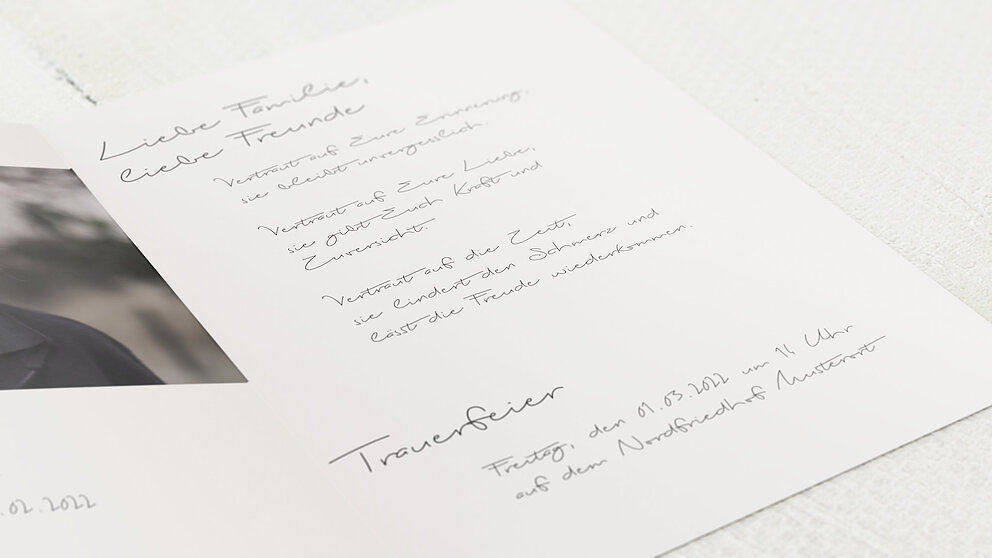 Liebe Familie,
liebe Freunde
Vertraut auf Eure Erinnerung,
sie bleibt unvergesslich.
Vertraut auf Eure Liebe,
sie gibt Euch Kraft und
Zuversicht.
Vertraut auf die Zeit,
sie lindert den Schmerz und
lässt die Freude wiederkommen.
Trauerfeier
Freitag, den 01.03.2022 um 14 Uhr
auf dem Nordfriedhof Musterort
.02.2022